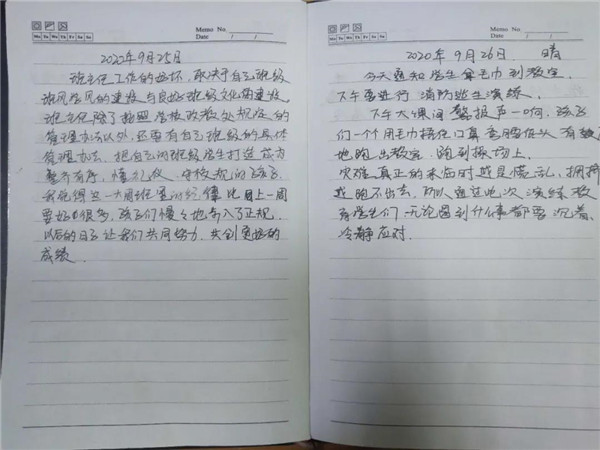 Memo No.
Mo Tu We Th Fr Sa Su
Date / /
2022年9月25日
班主任工作的好坏，取决于自己班级
班风学风的建设与良好班级文化的建设。
班主任除了按照学校政教处规定的
管理办法以外，还要有自己班级的具体
管理办法。把自己的班级学生打造成为
整齐有序，懂礼仪，守校规的孩子。
我觉得这一周班里的经像比周上一周
要好的很多，孩子们慢慢地步入了正规，
以后的日子让我们共同努力，共创更好的
成绩。
Memo No.
Mo Tu We Th Fr Sa Su
Date / /
2020年9月26日. 晴
今天通知学生拿毛巾到教室，
下午要进行消防逃生演练。
下午大课间警报声一响，孩子
们一个个用毛巾捂住口鼻弯腰 有序
地跑出教室，跑到操场上。
灾难真正的来临时越是慌乱，拥挤
越跑不出去，所以通过此次演练教
育学生们无论遇到什么事都要沉着、
冷静应对.